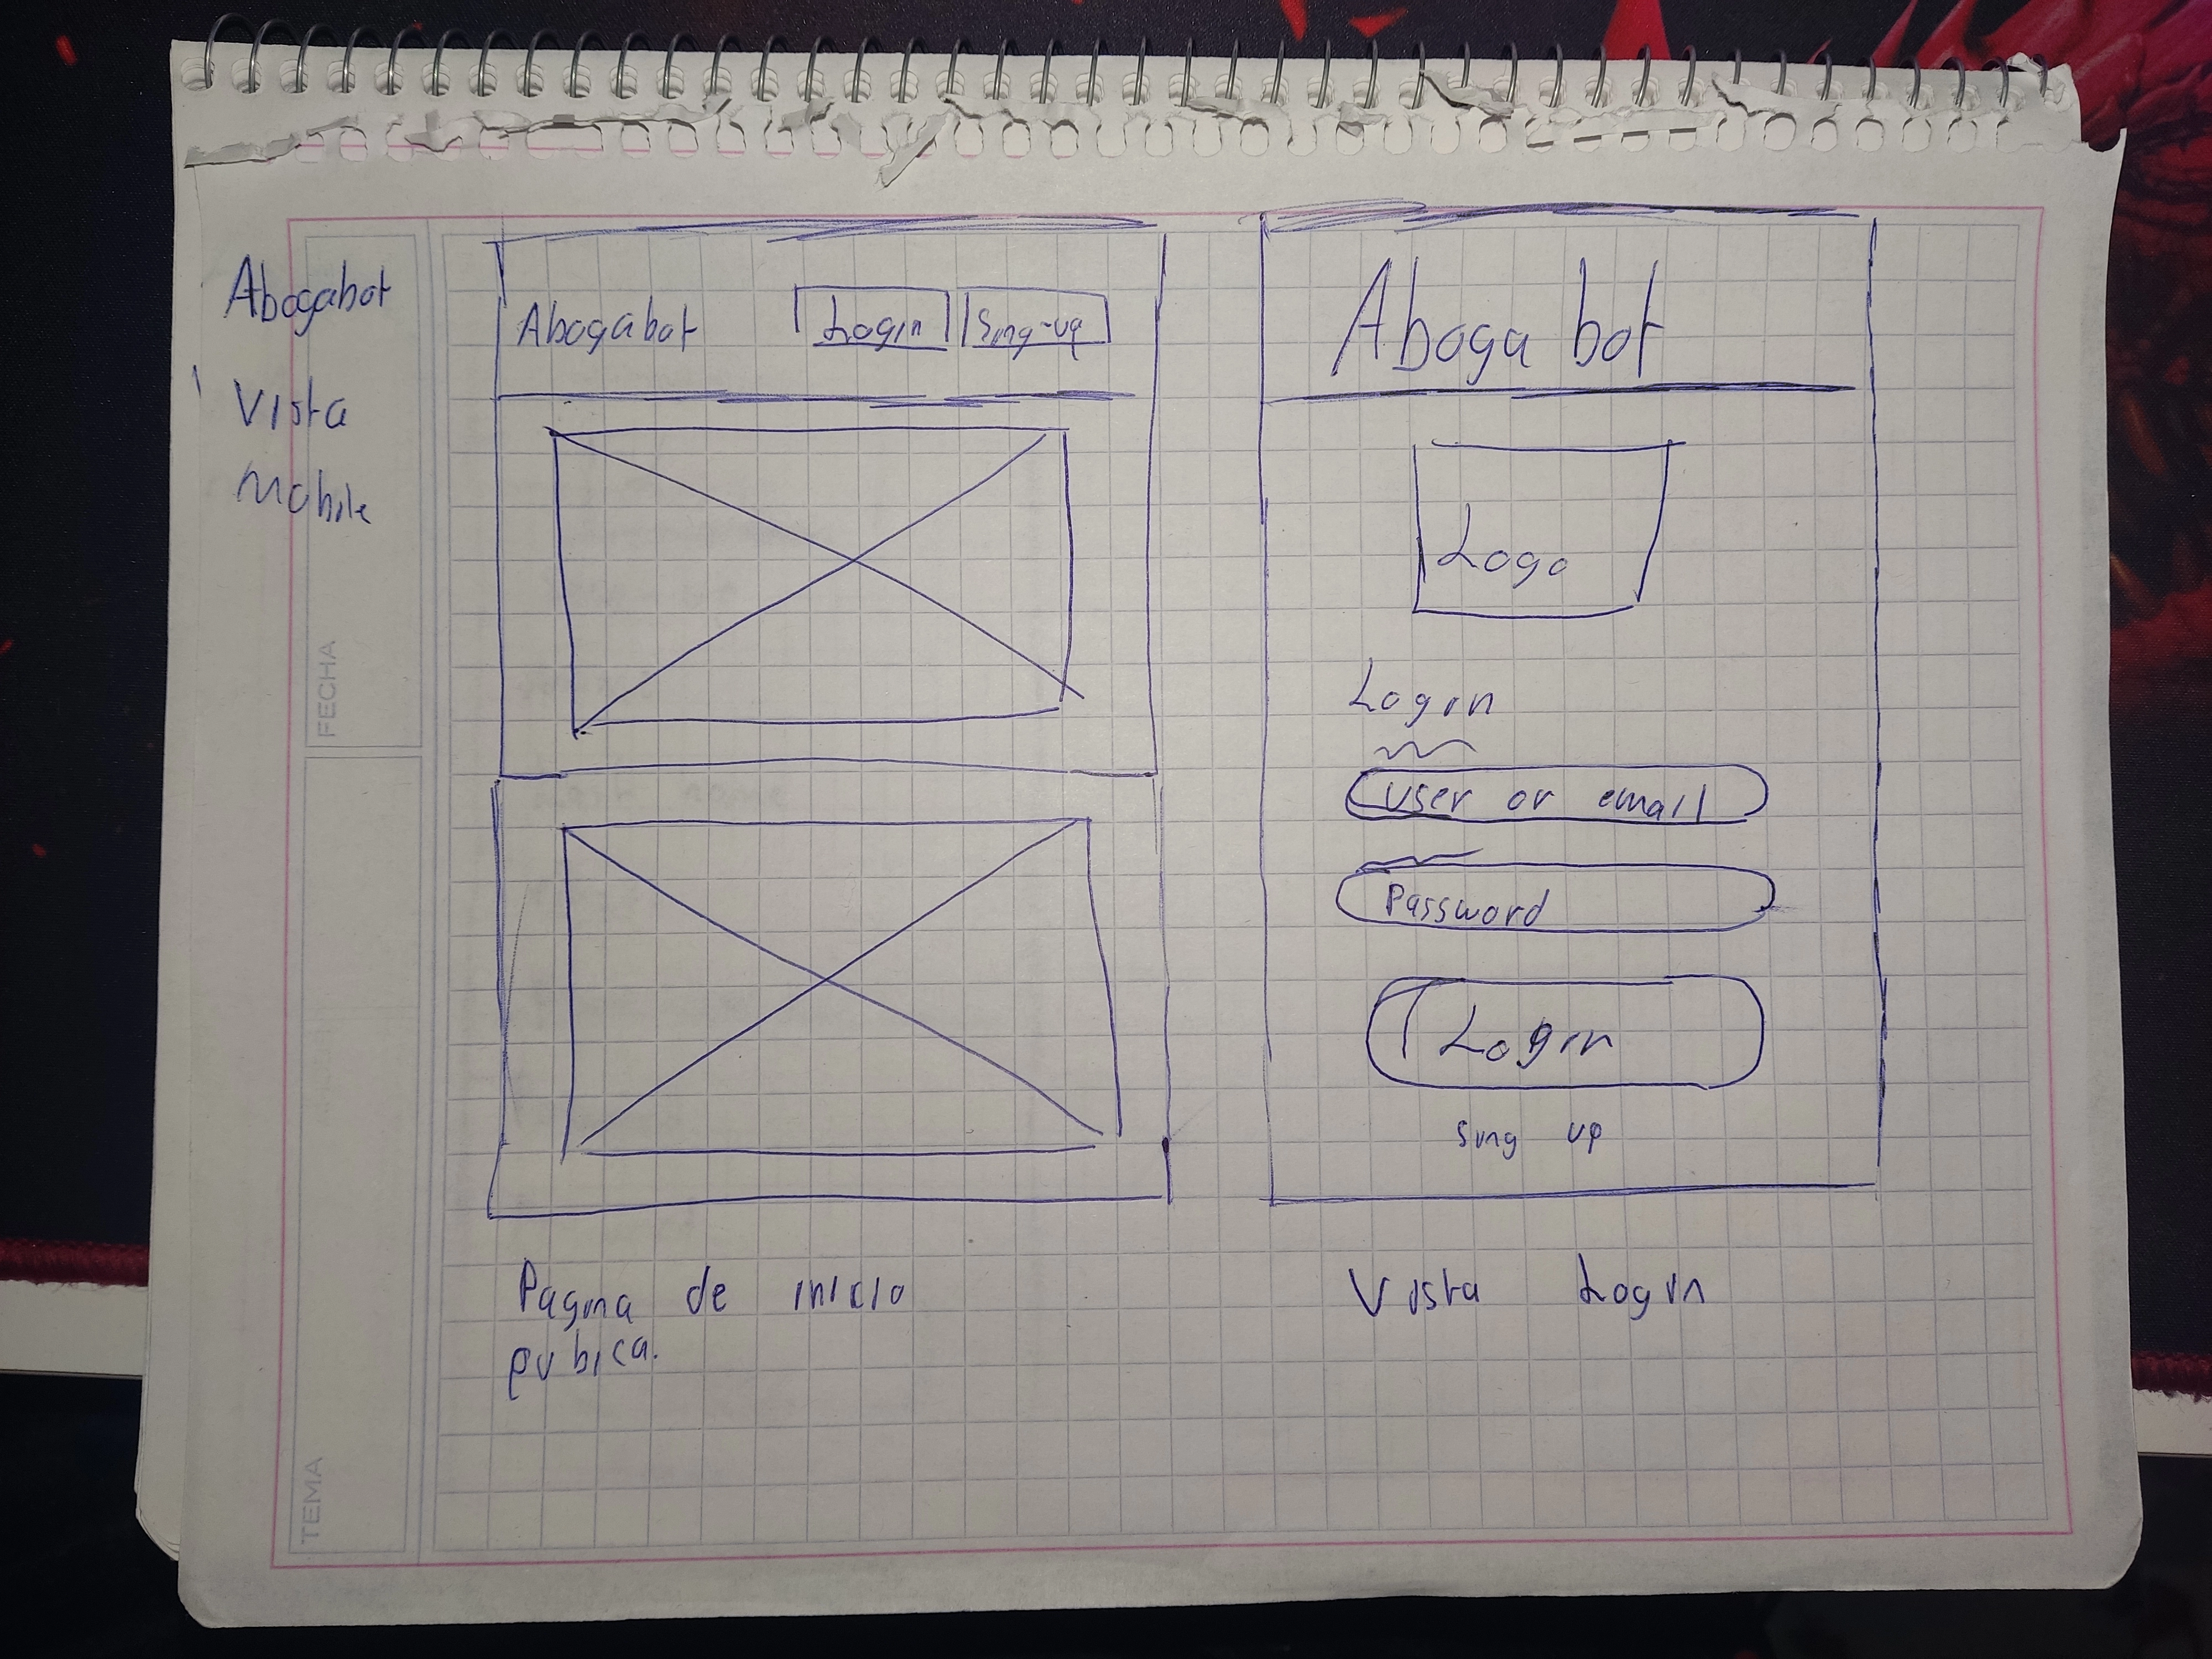 Abogabot
Vista
Mobile
Abogabot
Login
Sing-up
Pagina de inicio
pubica.
Aboga bot
Logo
Login
user or email
Password
Login
Sing up
Vista Login
FECHA
TEMA